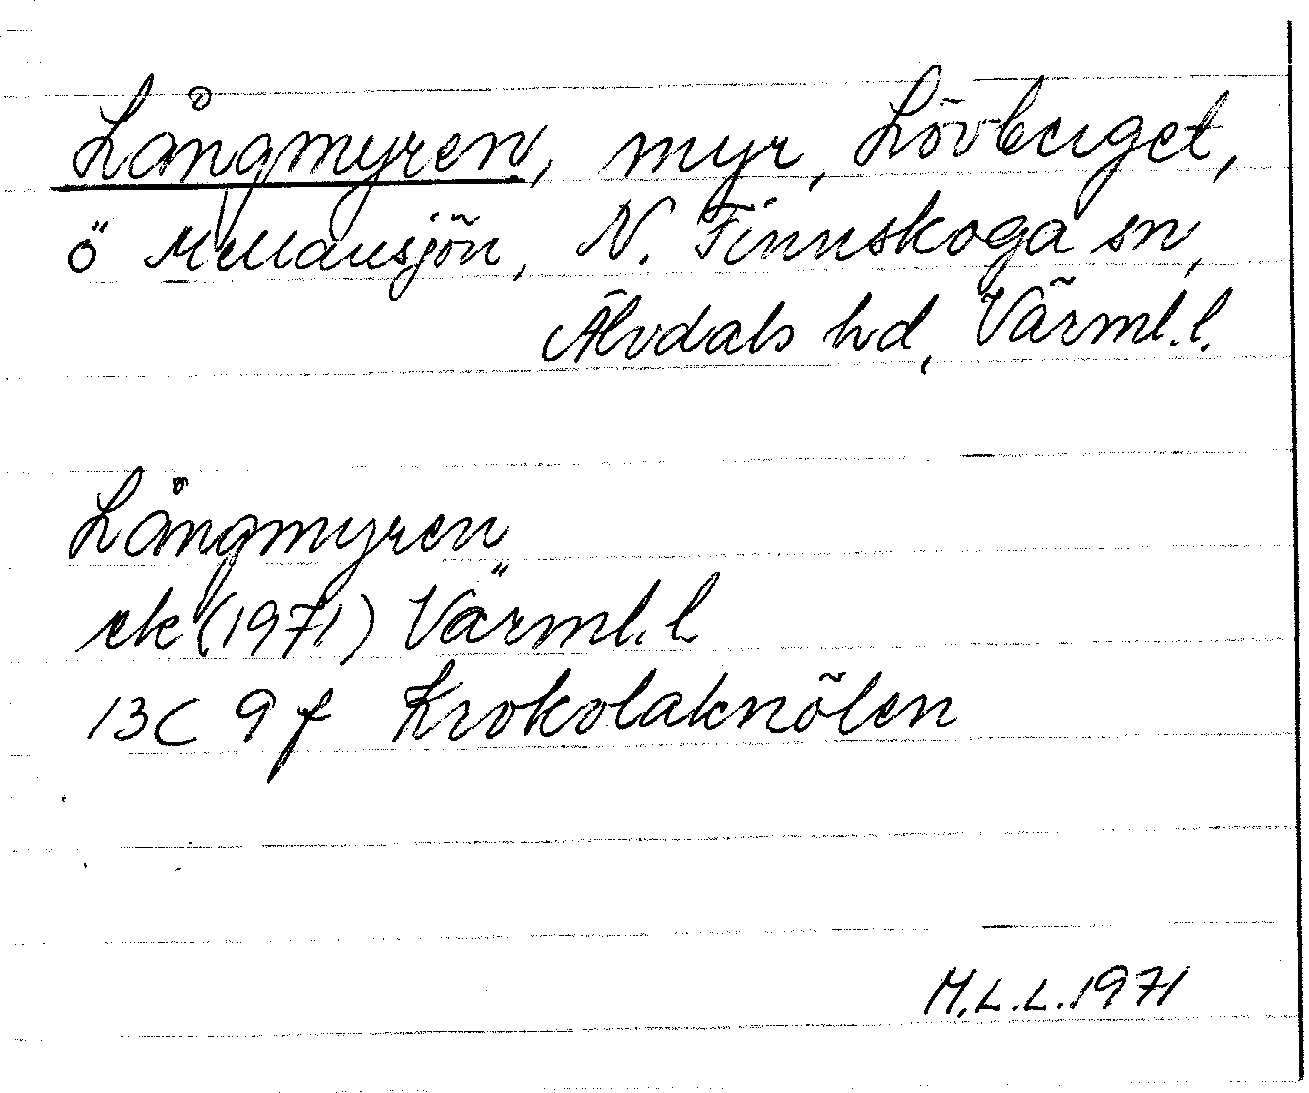 Långmyren, myr, Lövberget,
ö Mellansjön, N. Finnskoga sn,
Älvdals hd, Värml.l.
Långmyren
ek (1971) Värml.l.
13C 9f Krokolaknölen
M.L.L. 1971